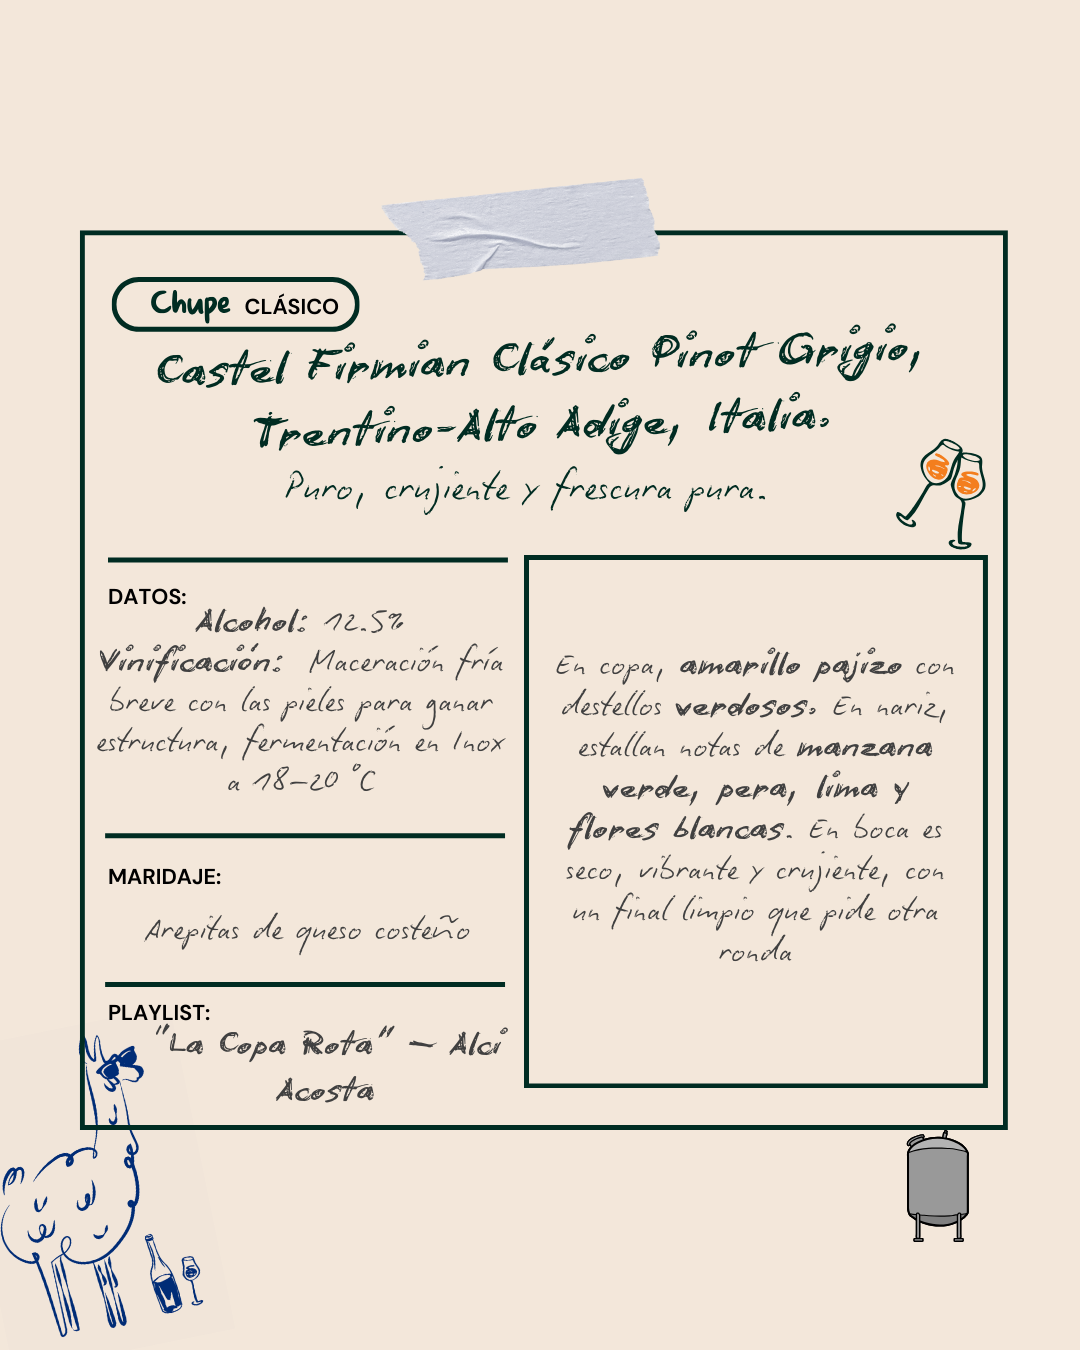 Chupe CLÁSICO
Castel Firmian Clásico Pinot Grigio,
Trentino-Alto Adige, Italia.
Puro, crujiente y frescura pura.
DATOS:
Alcohol: 12.5%
Vinificación: Maceración fría
breve con las pieles para ganar
estructura, fermentación en Inox
a 18–20 °C
MARIDAJE:
Arepitas de queso costeño
PLAYLIST:
"La Copa Rota" – Alci
Acosta
En copa, amarillo pajizo con
destellos verdosos. En nariz,
estallan notas de manzana
verde, pera, lima y
flores blancas. En boca es
seco, vibrante y crujiente, con
un final limpio que pide otra
ronda